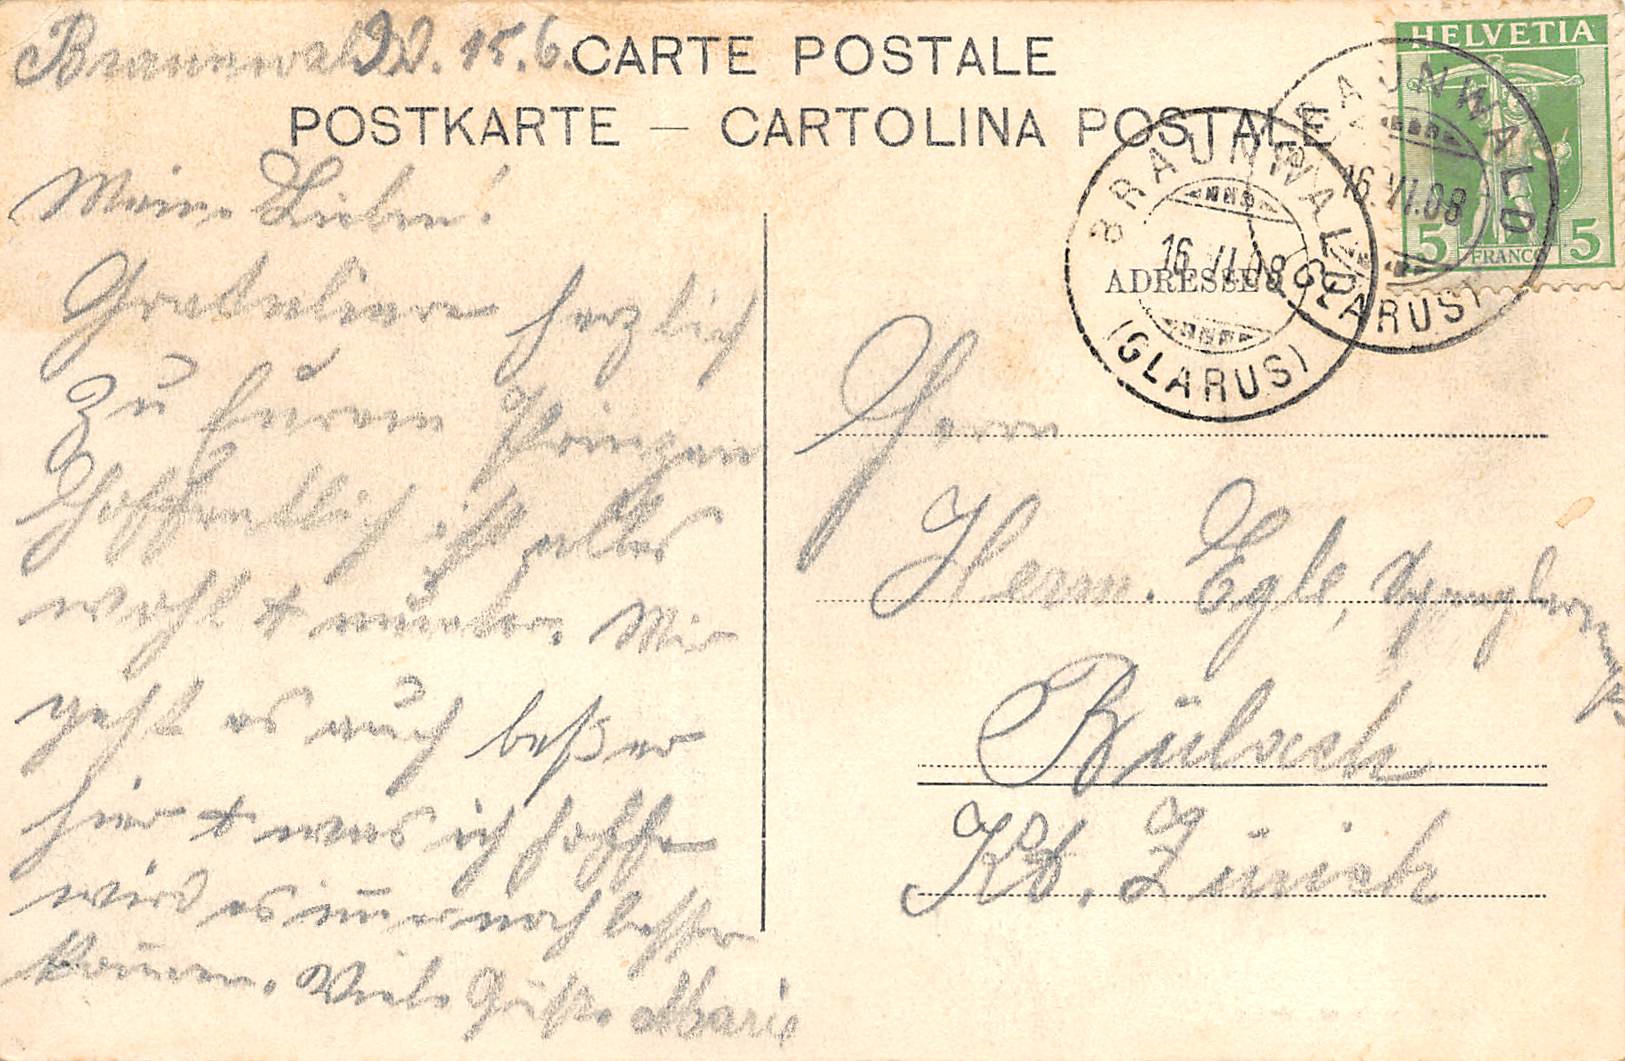 Braunwald D. 15.6.
CARTE POSTALE
POSTKARTE — CARTOLINA POSTALE
HELVETIA
5 FRANCO 5
BRAUNWALD
16.VI.08
(GLARUS)
BRAUNWALD
16.VI.08
(GLARUS)
ADRESSE
Meine Lieben!
Gratuliere herzlich
zu Eurem
Hoffentlich ist alles
wohl & munter. Mir
geht es auch beßer
hier & was ich hoffe
wird es immer noch besser
kommen. Viele Grüße Marie
Herrn
Herm. Egle,
Bülach
Kt. Zürich